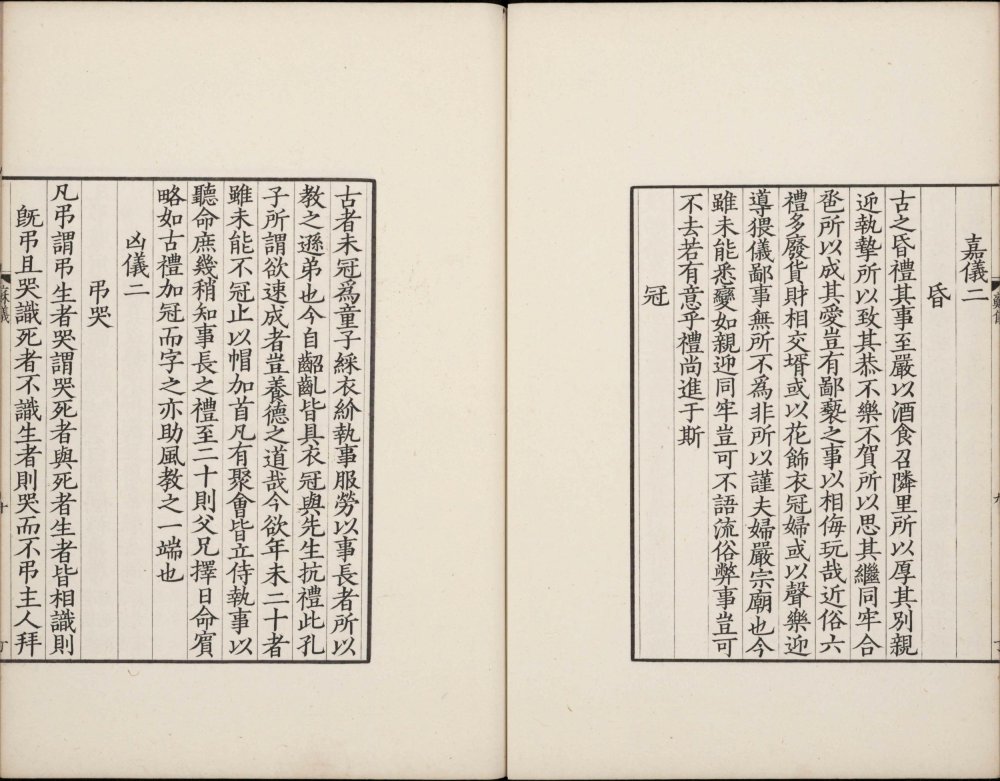 嘉儀二
昏
古之昏禮其事至嚴以酒食召隣里所以厚其別親
迎執摯所以致其恭不樂不賀所以思其繼同牢合
卺所以成其愛豈有鄙褻之事以相侮玩哉近俗六
禮多廢貨財相交壻或以花飾衣冠婦或以聲樂迎
導猥儀鄙事無所不爲非所以謹夫婦嚴宗廟也今
雖未能悉變如親迎同牢豈可不語流俗弊事豈可
不去若有意乎禮尚進于斯
冠
古者未冠爲童子綵衣紒執事服勞以事長者所以
教之遜弟也今自齠齔皆具衣冠與先生抗禮此孔
子所謂欲速成者豈養德之道哉今欲年未二十者
雖未能不冠止以帽加首凡有聚會皆立侍執事以
聽命庶幾稍知事長之禮至二十則父兄擇日命賓
略如古禮加冠而字之亦助風教之一端也
凶儀二
弔哭
凡弔謂弔生者哭謂哭死者與死者生者皆相識則
旣弔且哭識死者不識生者則哭而不弔主人拜